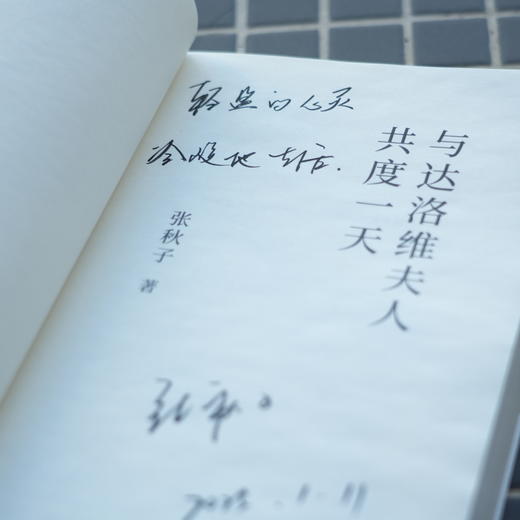 轻盈的心灵
地生活.
与达洛维夫人
共度一天
张秋子 著
张秋子
1.11